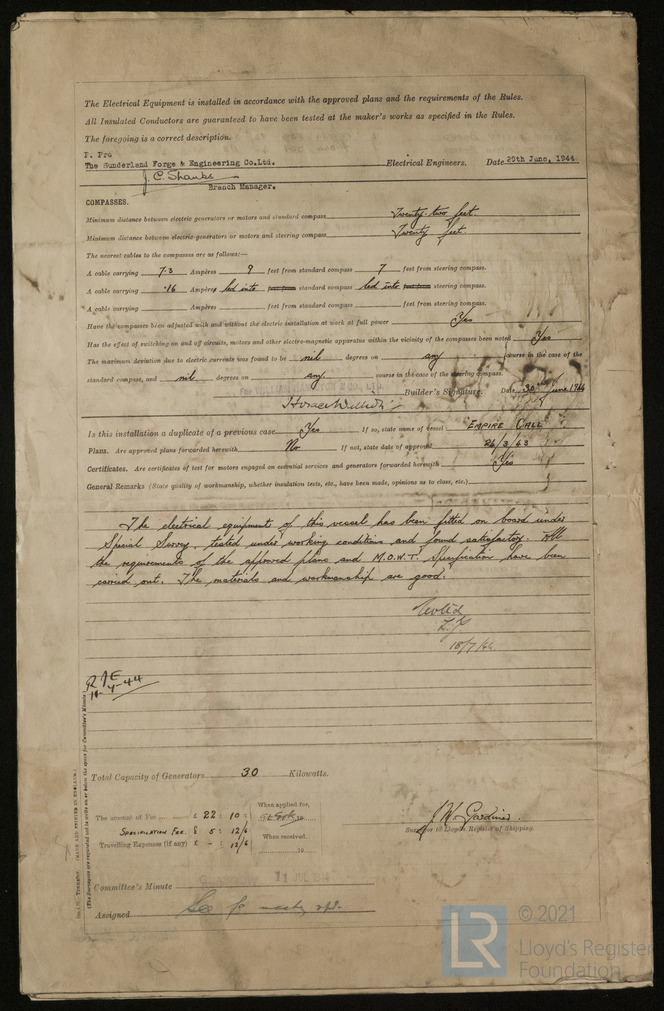 The Electrical Equipment is installed in accordance with the approved plans and the requirements of the Rules.
All Insulated Conductors are guaranteed to have been tested at the maker's works as specified in the Rules.
The foregoing is a correct description.
P. Pro
The Sunderland Forge & Engineering Co.Ltd. Electrical Engineers. Date 29th June, 1944
J. C. Shanks
Branch Manager.
COMPASSES.
Minimum distance between electric generators or motors and standard compass Twenty two feet.
Minimum distance between electric generators or motors and steering compass Twenty feet.
The nearest cables to the compasses are as follows:—
A cable carrying 7.3 Ampères 9 feet from standard compass 7 feet from steering compass.
A cable carrying .16 Ampères led into standard compass led into steering compass.
A cable carrying Ampères feet from standard compass feet from steering compass.
Have the compasses been adjusted with and without the electric installation at work at full power Yes
Has the effect of switching on and off circuits, motors and other electro-magnetic apparatus within the vicinity of the compasses been noted Yes
The maximum deviation due to electric currents was found to be nil degrees on any course in the case of the
standard compass, and nil degrees on any course in the case of the steering compass.
Builder's Signature. Date 30 June 1944
Is this installation a duplicate of a previous case Yes If so, state name of vessel EMPIRE CALL
Plans. Are approved plans forwarded herewith No If not, state date of approval 26/3/43
Certificates. Are certificates of test for motors engaged on essential services and generators forwarded herewith Yes
General Remarks (State quality of workmanship, whether insulation tests, etc., have been made, opinions as to class, etc.)
The electrical equipment of this vessel has been fitted on board under
Special Survey, tested under working conditions and found satisfactory. All
the requirements of the approved plans and M.O.W.T. Specification have been
carried out. The materials and workmanship are good.
Noted
18/7/44
11-7-44
Total Capacity of Generators 30 Kilowatts.
The amount of Fee £ 22 : 10 :
When applied for,
SPECIFICATION FEE £ 5 : 12/6
Travelling Expenses (if any) £ - : 12/6
When received,
J W Gardiner
Surveyor to Lloyd's Register of Shipping.
Committee's Minute GLASGOW 11 JUL 1944
Assigned
(The Surveyors are requested not to write on or below the space for Committee's Minute.)
© 2021
LR
Lloyd's Register
Foundation